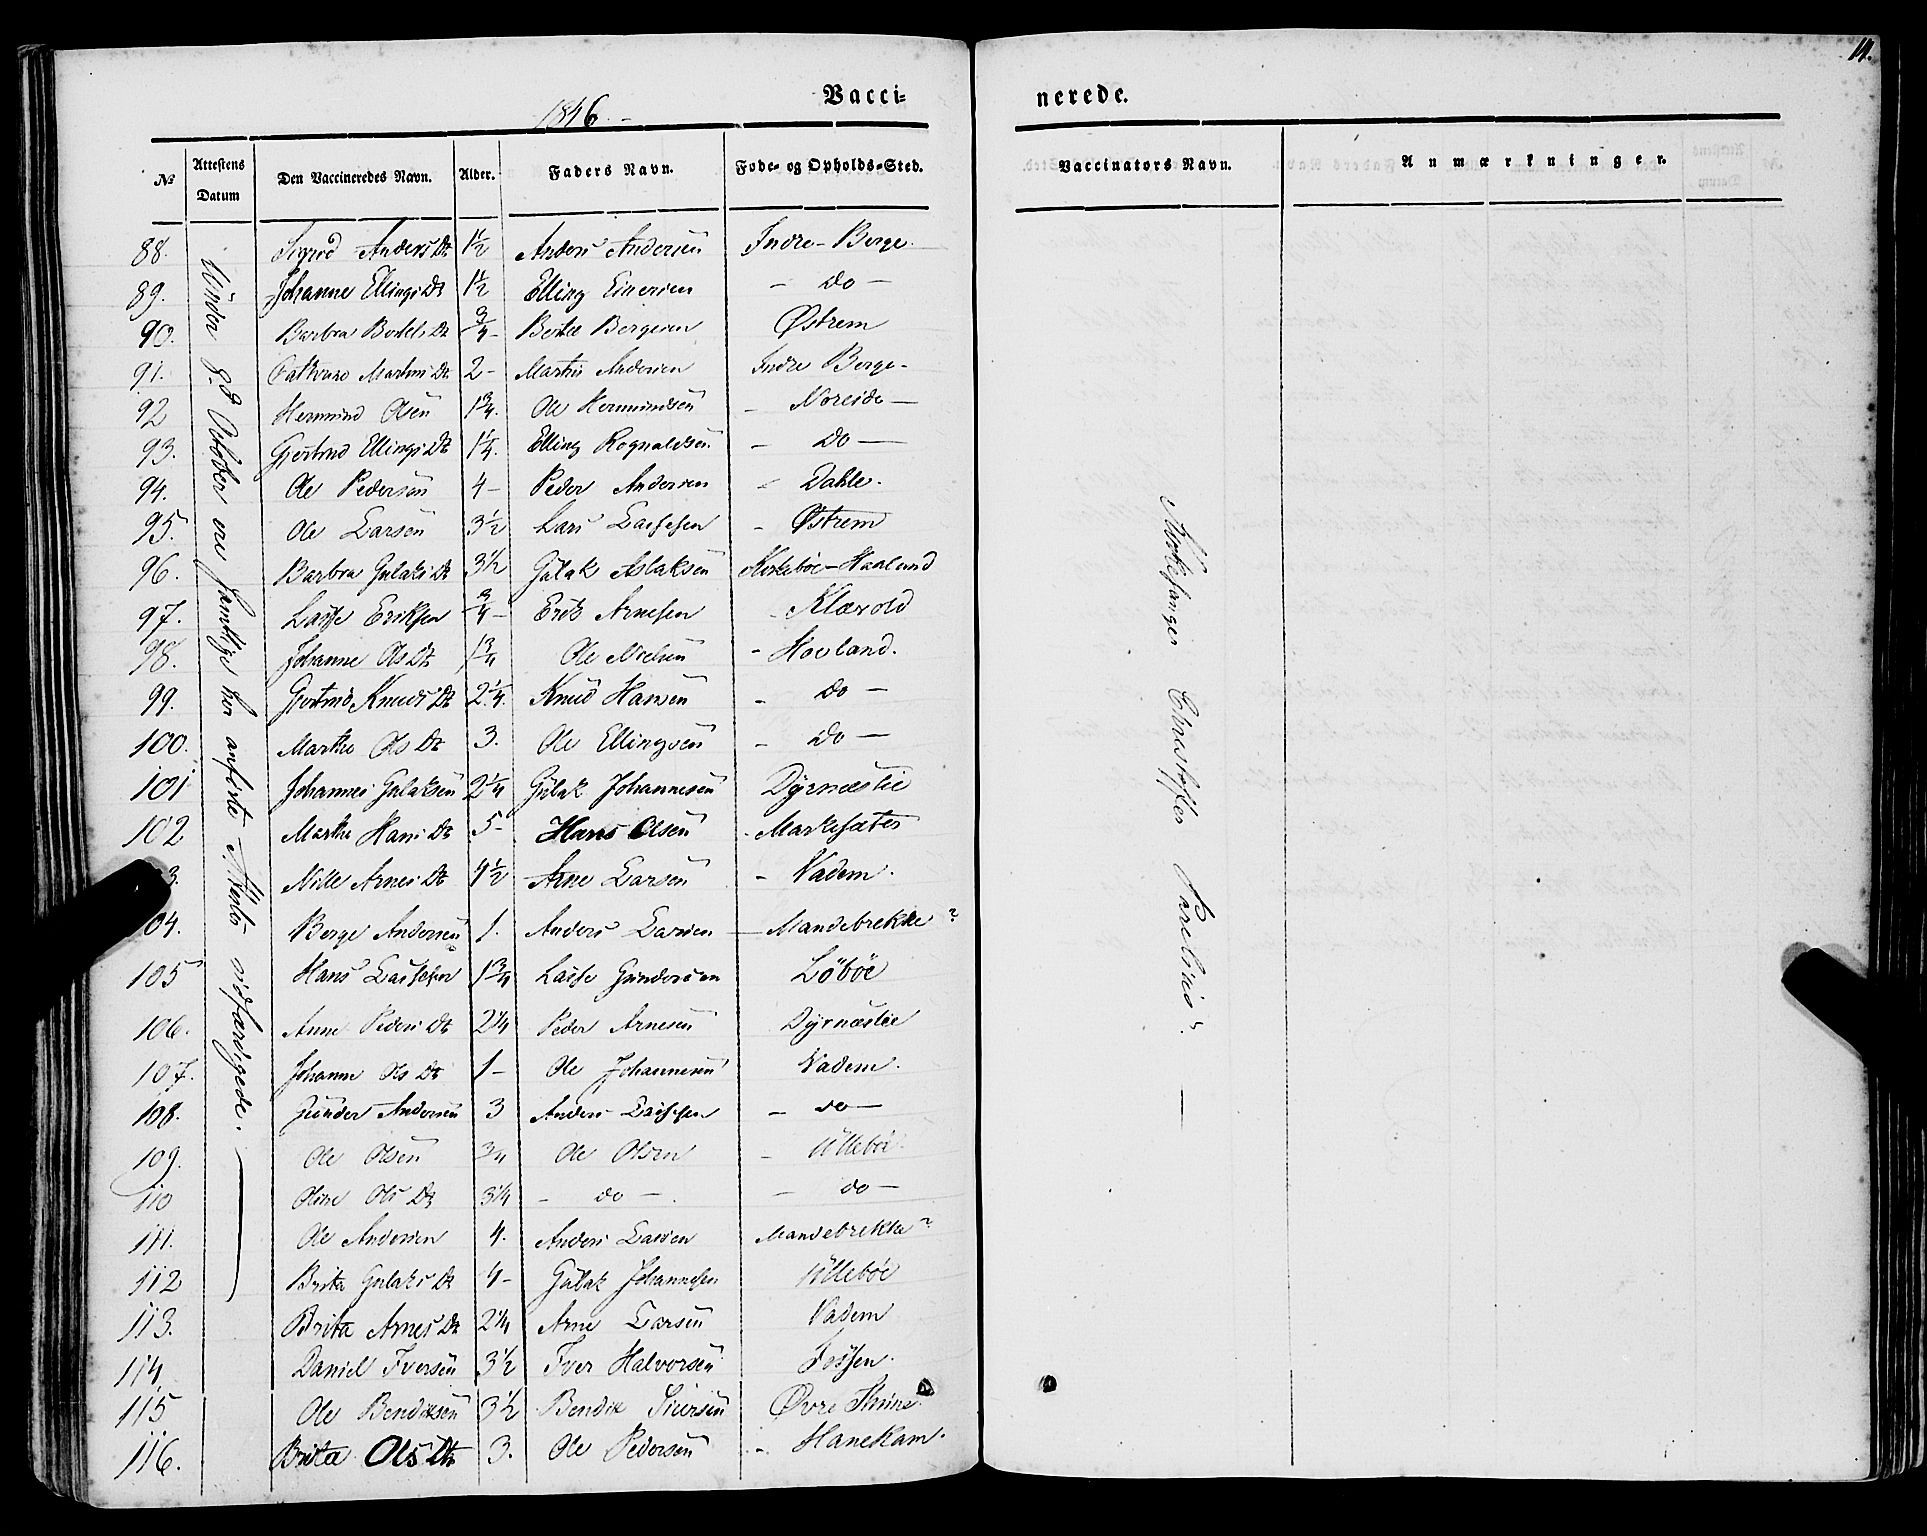 14.
1846.-
Vacci=
nerede.
№ Attestens Datum Den Vaccineredes Navn. Alder. Faders Navn. Føde- og Opholds-Sted. Vaccinators Navn. Anmærkninger.
88. Sigrid Anders Dr 1½ Anders Andersen Indre-Berge.
89. Johanne Ellings Dr 1½ Elling Einersen - do -
90. Barbra Bertels Dr ¾- Bertel Bergesen Østrem
91. Martins Dr 2- Martin Andersen Indre Berge-
92 Hermund Olsen 1¾. Ole Hermundsen - Noreide -
93. Gjertrud Ellings Dr 1¼. Elling Rognaldsen - do -
94. Ole Pedersen 4- Peder Andersen - Dahle.
95. Ole Larsen 3½ Lars Lassesen - Østrem
96. Barbra Gulaks Dr 3½ Gulak Aslaksen Kirkebøe-Haaland
97. Lasse Eriksen ¾- Erik Arnesen - Klævold
98. Johanne Ols Dr 1¾ Ole Nielsen - Hovland.
99. Gjertrud Knuds Dr 2¼. Knud Hansen - do -
100. Marthe Ols Dr 3. Ole Ellingsen - do -
101 Johannes Gulaksen 2¼ Gulak Johannesen Dyrnæslie
102 Marthe Hans Dr 5- Hans Olsen - Markesæter
3. Nille Arnes Dr 4½ Arne Larsen - Vadem.
104. Berge Andersen 1. Anders Larsen - Mandebrekke?
105 Hans Lassesen 1¾ Lasse Gundersen Løbøe
106. Anne Peders Dr 2¼ Peder Arnesen Dyrnæslie
107. Johanne Ols Dr 1- Ole Johannesen Vadem.
108. Gunder Andersen 3 Anders Lassesen - do -
109. Ole Olsen ¾ Ole Olsen - Ullebøe
110 Oline Ols Dr 3¼ - do -. - do -
111. Ole Andersen 4. Anders Larsen Mandebrekke?
112 Brita Gulaks Dr 4- Gulak Johannesen Ullebøe
113. Brita Arnes Dr 2¼ Arne Larsen Vadem
114. Daniel Iversen 3½ Iver Halvorsen
115 Ole Bendiksen 3½ Bendik Siursen Øvre Thune.
116. Brita Ols Dr 3. Ole Pedersen - Hanekam.
Under 8.d October ere samtlige her anførte Attester udfærdigede.
Kirkesanger Christoffer